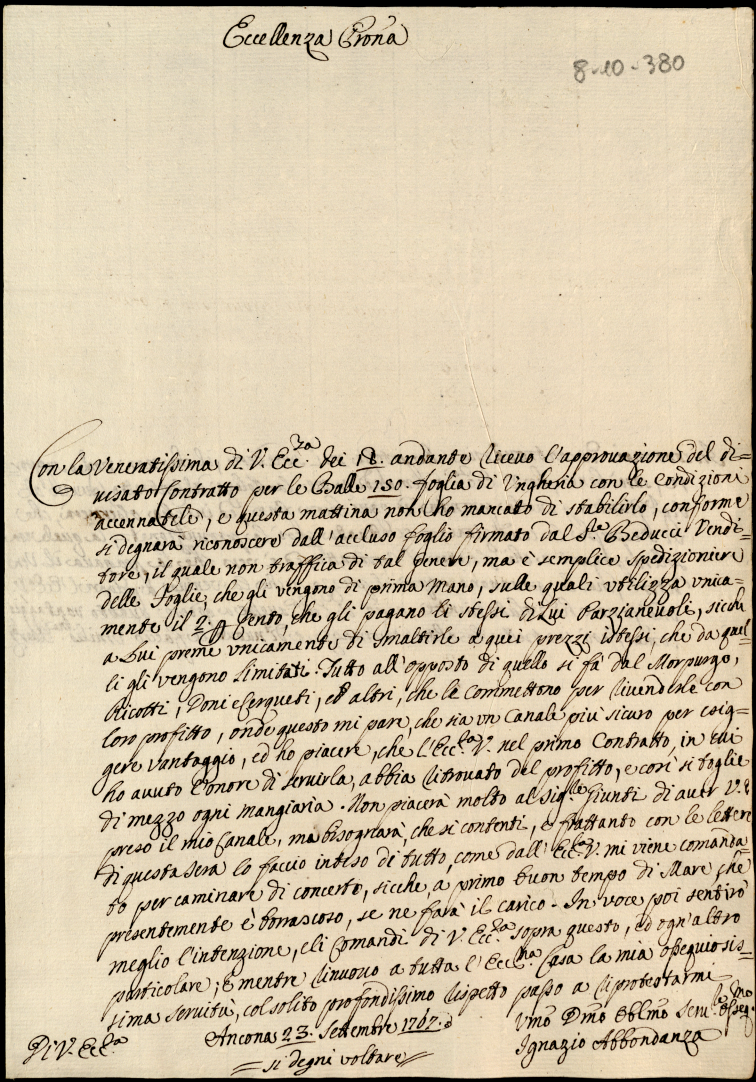 Eccellenza Prona
8-10-380
Con la Veneratissima di V. Ecc.za dei 18. andante ricevo l'approvazione del di=
visato Contratto per le Balle 150. foglia di Ungheria con le Condizioni
accennateli, e questa mattina non ho mancato di stabilirlo, conforme
si degnarà riconoscere dall'accluso foglio firmato dal S.r Beducci Vendi=
tore, il quale non traffica di tal genere, ma è semplice spedizioniere
delle Foglie, che gli vengono di prima mano, sulle quali utilizza unica=
mente il 2. p Cento, che gli pagano li stessi di Lui Parzianevoli, sicche
a Lui preme unicamente di smaltirle a quei prezzi istessi, che da quel=
li gli vengono limitati. Tutto all'opposto di quello si fà dal Morpurgo,
Ricotti, Doni e Cerqueti, ed altri, che le Commettono per rivenderle con
loro profitto, onde questo mi pare, che sia un Canale più sicuro per esig=
gere vantaggio, ed ho piacere, che l'Ecc.za V. nel primo Contratto, in cui
ho avuto l'onore di servirla, abbia ritrovato del profitto, e così si toglie
di mezzo ogni mangiaria. Non piacerà molto al Sig.re Giunti di aver V. E.
preso il mio Canale, ma bisognarà, che si contenti, e frattanto con le lettere
di questa sera lo faccio inteso di tutto, come dall'Ecc.za V. mi viene comanda=
to per caminare di concerto, sicche, a primo buon tempo di Mare, che
presentemente è borrascoso, se ne farà il carico. In voce poi sentirò
meglio l'intenzione, e li Comandi di V. Ecc.za sopra questo, ed ogn'altro
particolare; e mentre rinuovo a tutta l'Ecc.ma Casa la mia ossequiosis=
sima servitù, col solito profondissimo rispetto passo a riprotestarmi
Di V. Ecc.za Ancona 23. Settembre 1767.
Umo Dmo Oblmo Serv.le osseq.mo
Ignazio Abbondanza
= si degni voltare =